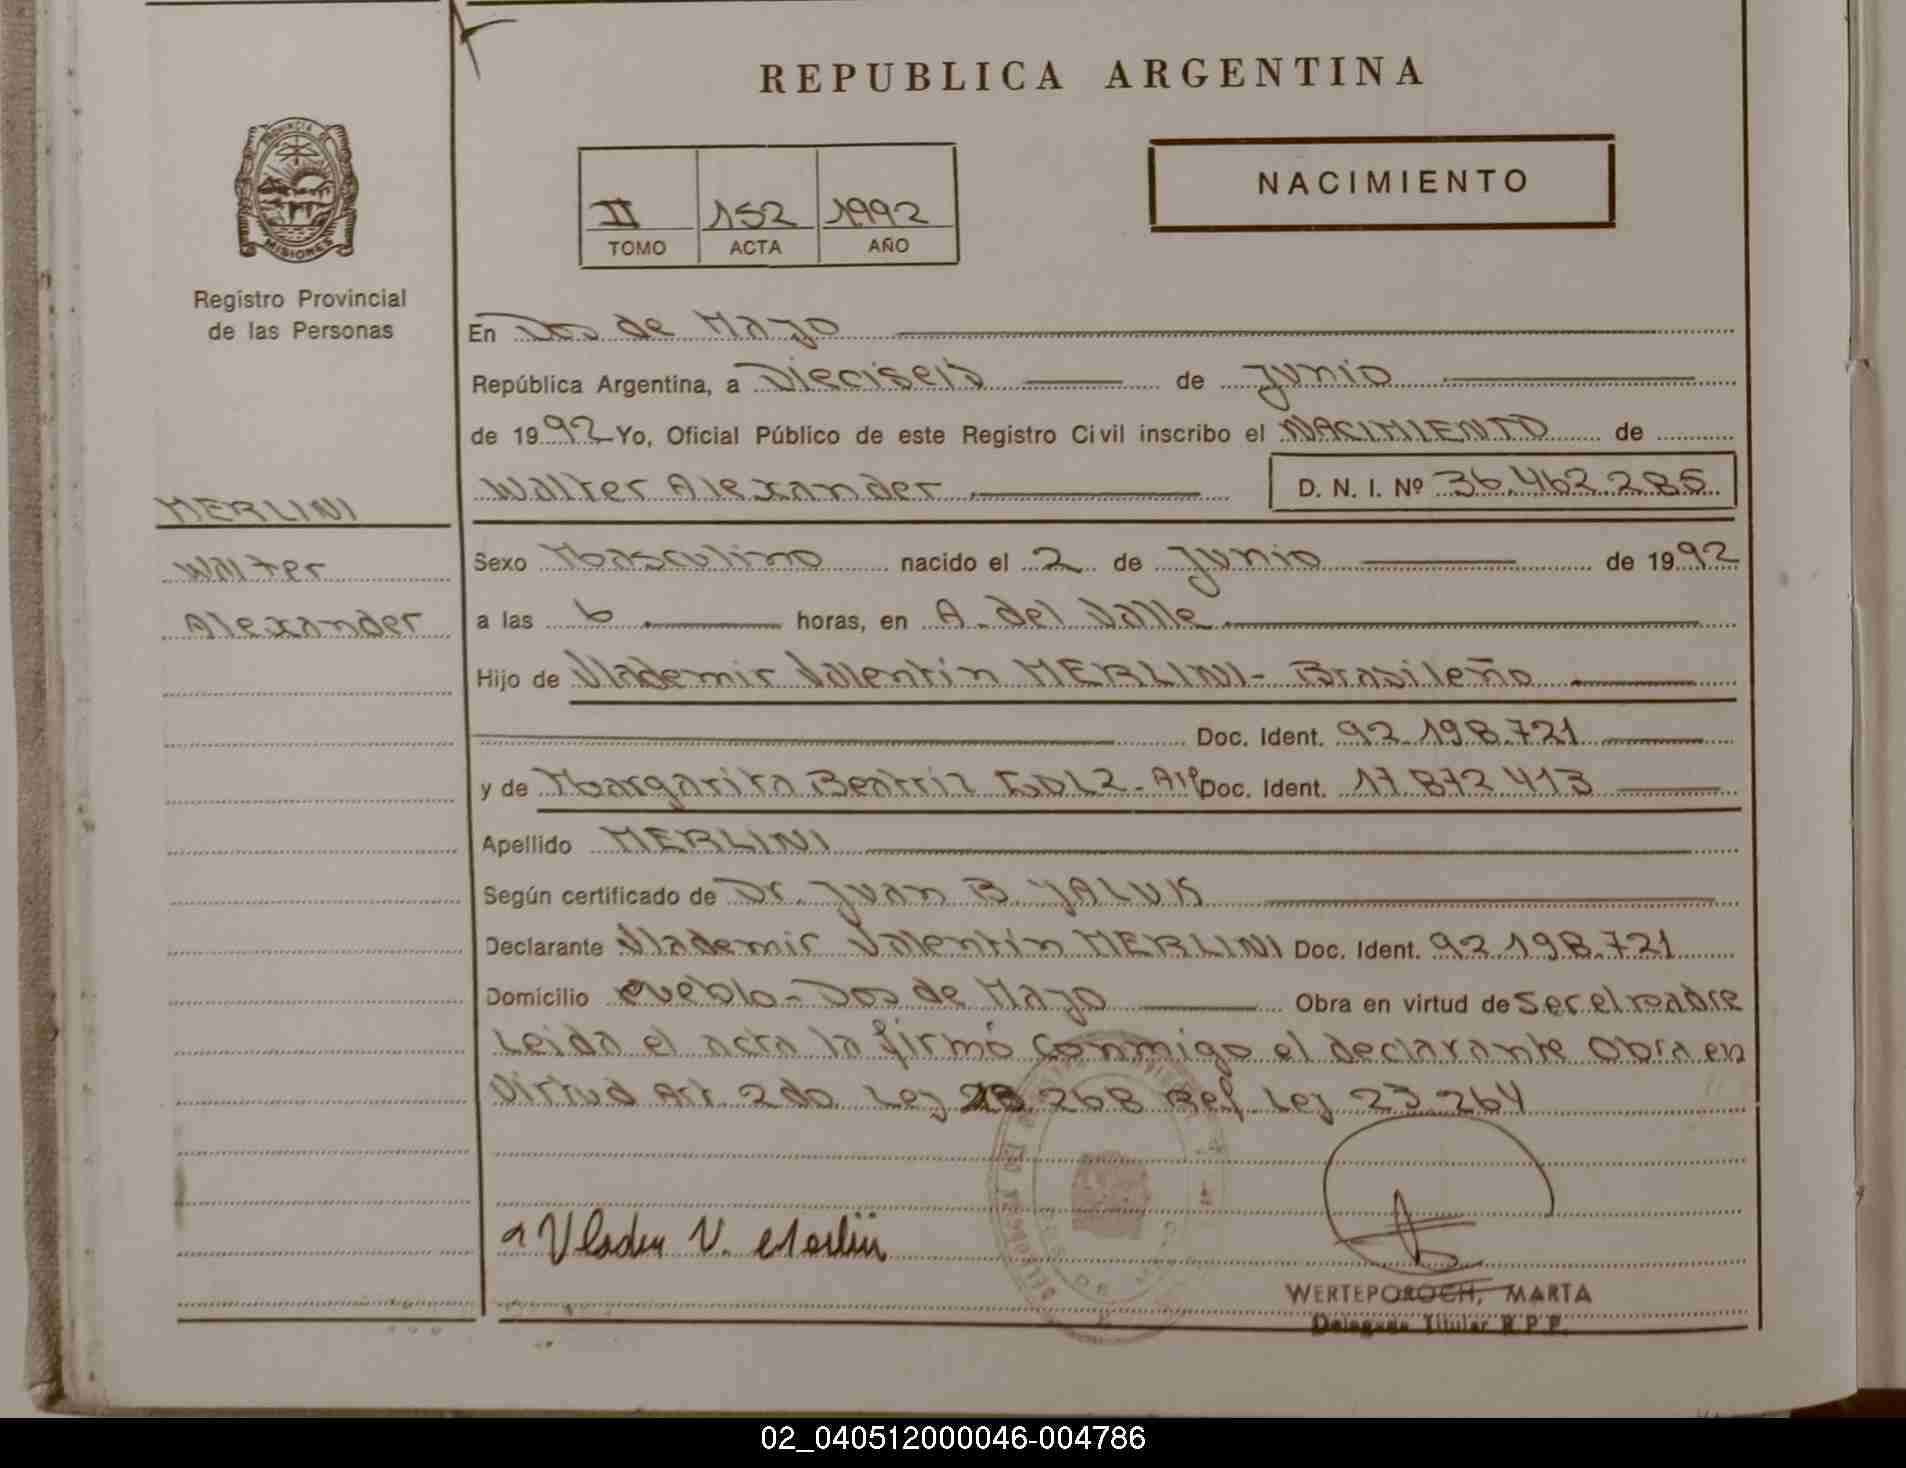 REPUBLICA ARGENTINA
PROVINCIA DE
MISIONES
Registro Provincial
de las Personas
II 152 1992
TOMO ACTA AÑO
NACIMIENTO
En Dos de Mayo
República Argentina, a Dieciseis de Junio
de 1992 Yo, Oficial Público de este Registro Civil inscribo el NACIMIENTO de
Walter Alexander D. N. I. Nº 36.462.285
MERLINI
Walter
Alexander
Sexo Masculino nacido el 2 de Junio de 1992
a las 6 horas, en A. del Valle
Hijo de Vlademir Valentín MERLINI- Brasileño
Doc. Ident. 92.198.721
y de Margarita Beatriz - Doc. Ident. 17.872.413
Apellido MERLINI
Según certificado de Dr. Juan B. YALUK
Declarante Vlademir Valentín MERLINI Doc. Ident. 92.198.721
Domicilio Pueblo - Dos de Mayo Obra en virtud de Ser el padre
Leida el acta la firmó conmigo el declarante Obra en
Virtud Art. 2do Ley 268 Ref. Ley 23.264
V. Merlini
WERTEPOROCH, MARTA
Delegada Titular R.P.P.
02_040512000046-004786